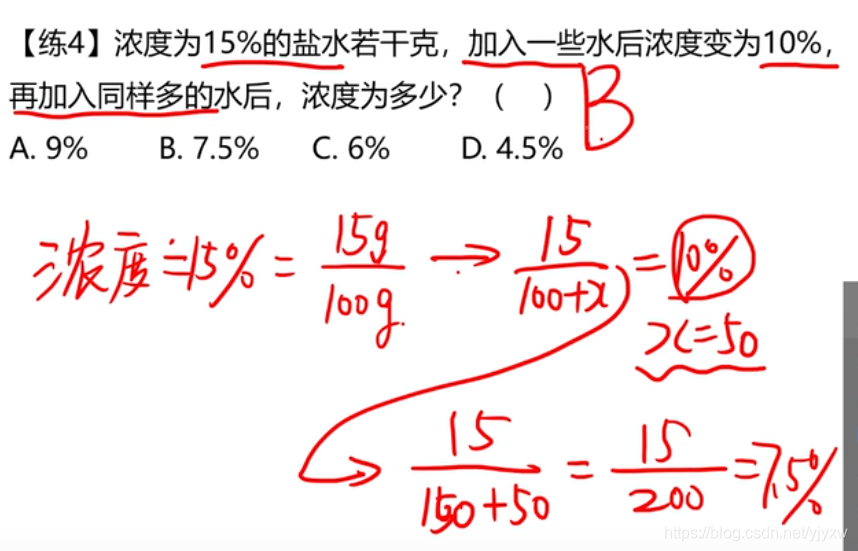 【练4】浓度为15%的盐水若干克，加入一些水后浓度变为10%，
再加入同样多的水后，浓度为多少？（ ）B
A. 9% B. 7.5% C. 6% D. 4.5%
浓度=15% = 15g/100g → 15/(100+x) = 10%
x=50
15/(150+50) = 15/200 = 7.5%
https://blog.csdn.net/yjyxw